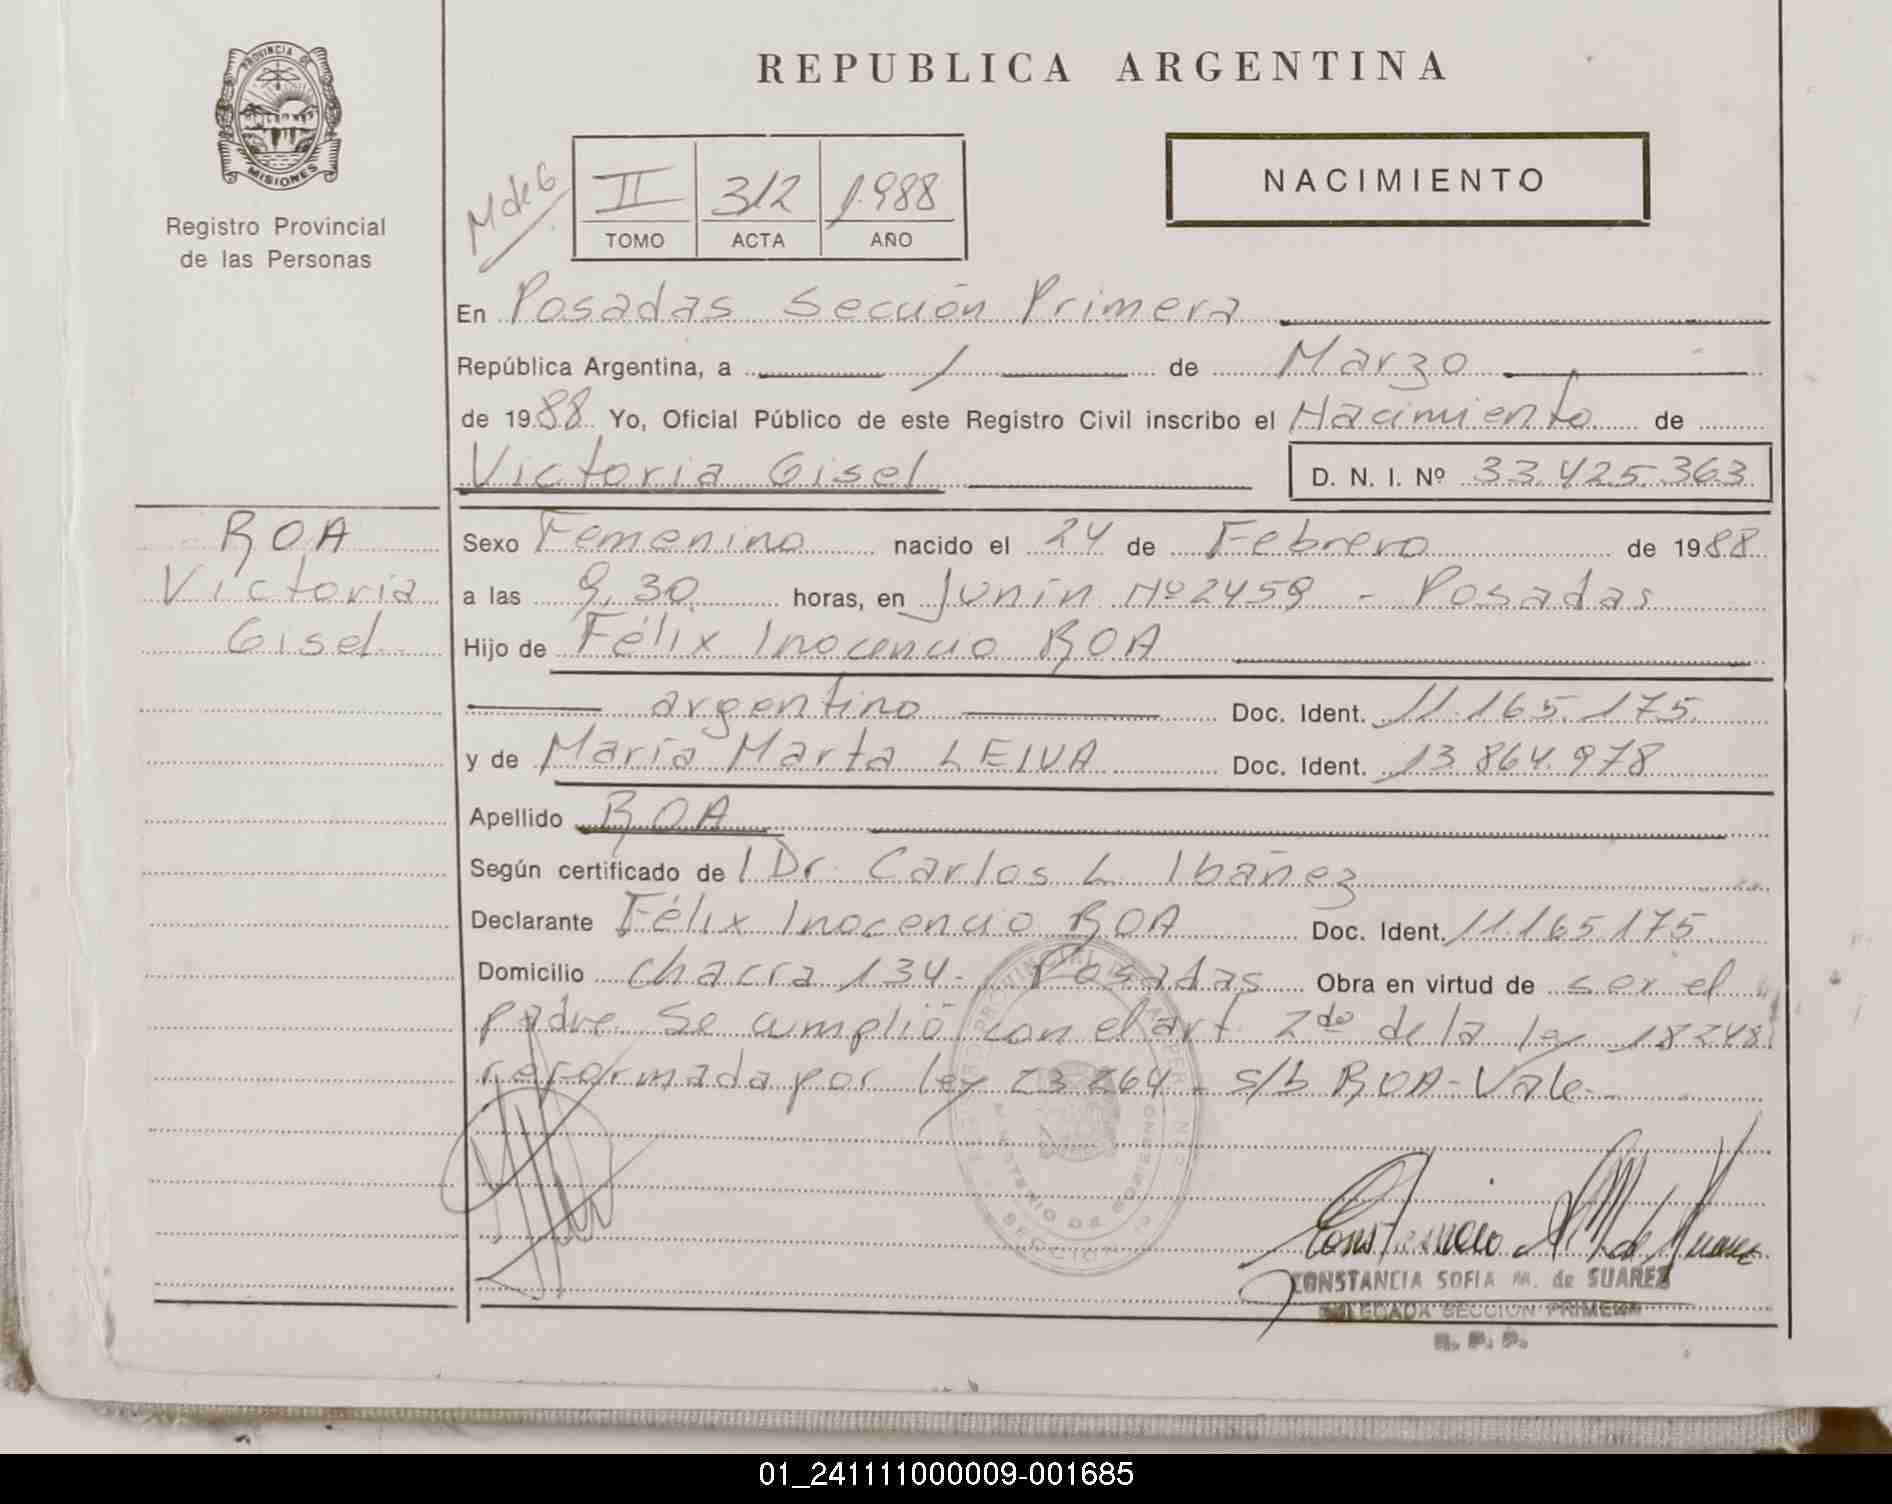 PROVINCIA DE
MISIONES
Registro Provincial
de las Personas
REPUBLICA ARGENTINA
NACIMIENTO
M de G
II 312 1.988
TOMO ACTA AÑO
En Posadas Sección Primera
República Argentina, a 1 de Marzo
de 1988 Yo, Oficial Público de este Registro Civil inscribo el Nacimiento de
Victoria Gisel D. N. I. Nº 33.425.363
ROA
Victoria
Gisel
Sexo Femenino nacido el 24 de Febrero de 1988
a las 9,30 horas, en Junín Nº 2459 - Posadas
Hijo de Félix Inocencio ROA
argentino Doc. Ident. 11.165.175
y de María Marta LEIVA Doc. Ident. 13.864.978
Apellido ROA
Según certificado de l Dr. Carlos L. Ibáñez
Declarante Félix Inocencio ROA Doc. Ident. 11.165.175
Domicilio chacra 134- Posadas Obra en virtud de ser el
padre. Se cumplió con el art. 2do de la ley 18248
reformada por ley 23264 - s/b ROA - Vale-
MINISTERIO DE GOBIERNO
SECCION
CONSTANCIA SOFIA M. de SUAREZ
DELEGADA SECCION PRIMERA
R. P. P.
01_241111000009-001685